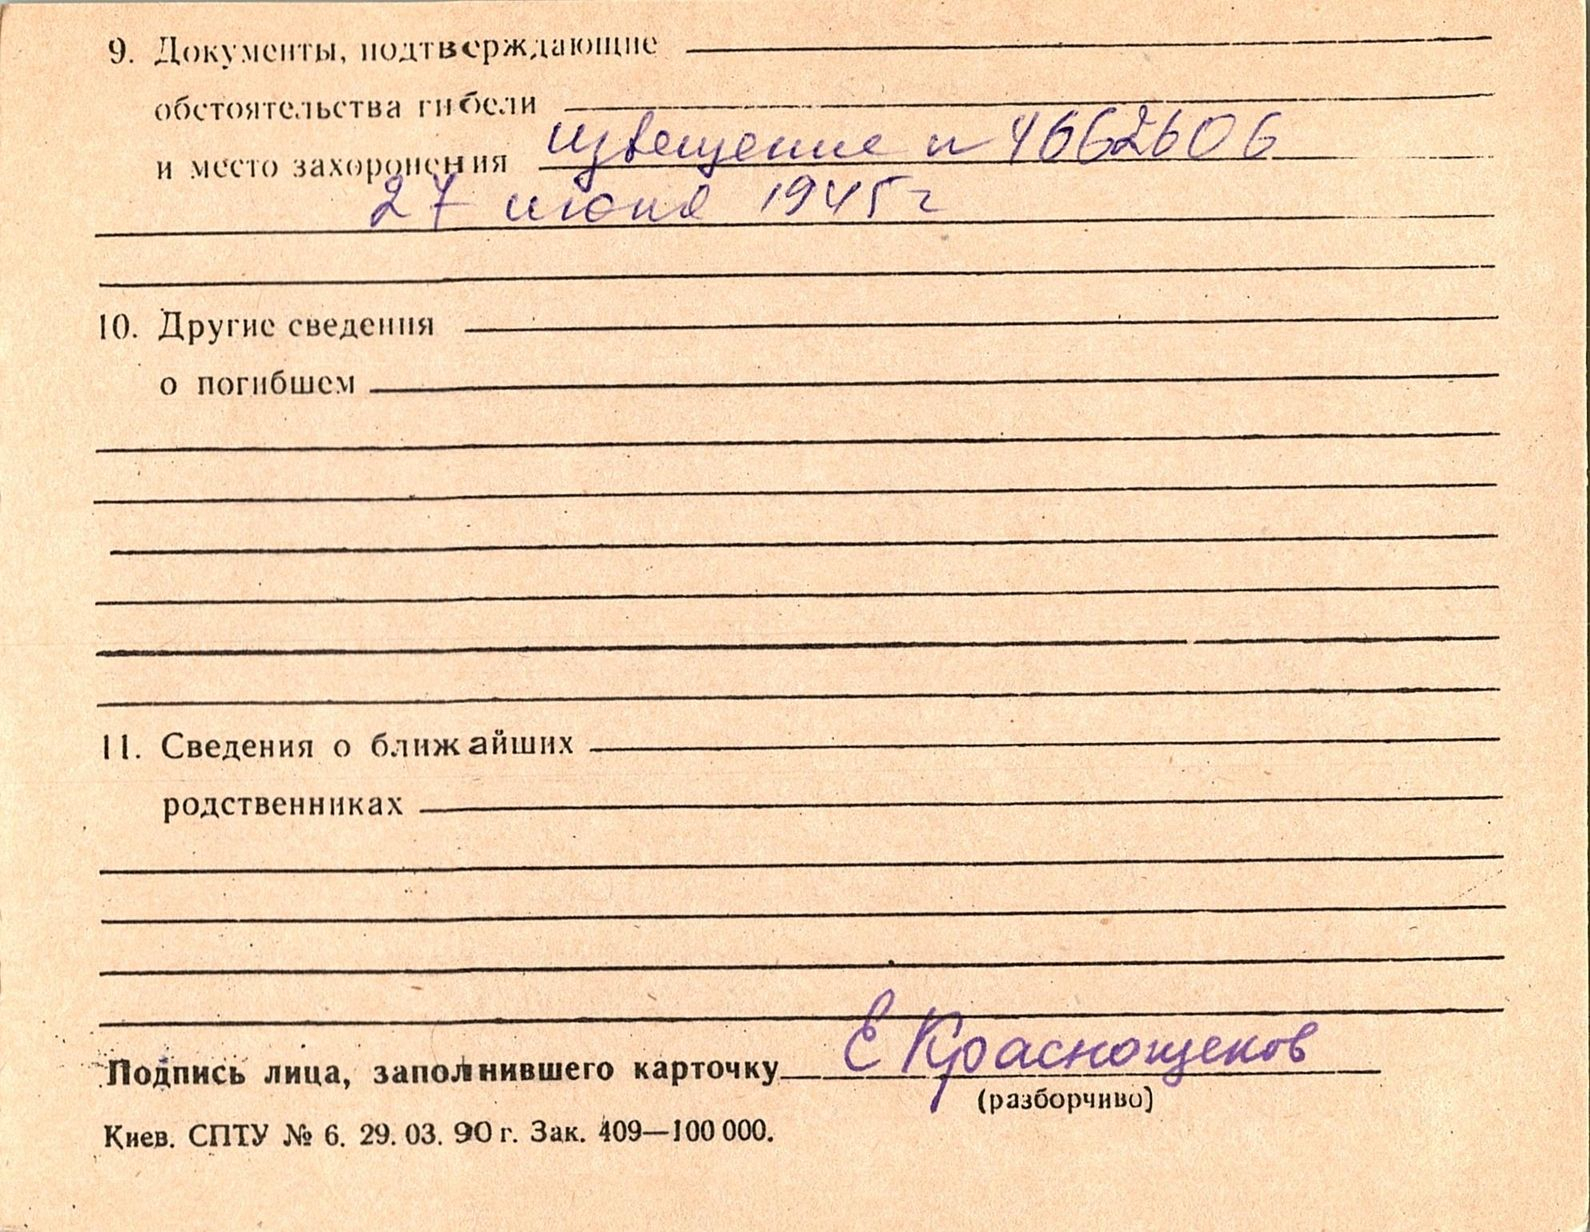 9. Документы, подтверждающие
обстоятельства гибели
и место захоронения извещение н 4662606
27 июня 1945 г
10. Другие сведения
о погибшем
11. Сведения о ближайших
родственниках
Подпись лица, заполнившего карточку Е Краснощеков
(разборчиво)
Киев. СПТУ № 6. 29. 03. 90 г. Зак. 409—100 000.